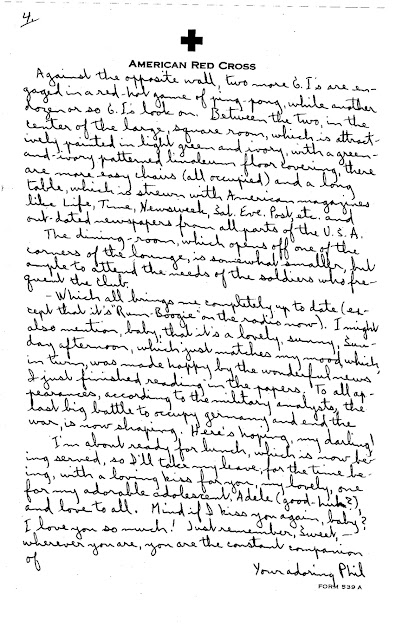 4.
AMERICAN RED CROSS
Against the opposite wall, two more G.I's are en-
gaged in a red-hot game of ping-pong, while another
dozen or so G.I's look on. Between the two, in the
center of the large, square room, which is attract-
ively painted in light green and ivory, with a green-
and-ivory patterned linoleum floor covering, there
are more easy chairs (all occupied) and a long
table, which is strewn with American magazines
like Life, Time, Newsweek, Sat. Eve. Post, etc. and
out-dated newspapers from all parts of the U.S.A.
The dining-room, which opens off one of the
corners of the lounge, is somewhat smaller, but
ample to attend the needs of the soldiers who fre-
quent the club.
- Which all brings me completely up to date (ex-
cept that it's "Rum-Boogie" on the radio now). I might
also mention, baby, that it's a lovely, sunny, Sun-
day afternoon, which just matches my mood which,
in turn, was made happy by the wonderful news
I just finished reading in the papers. To all ap-
pearances, according to the military analysts, the
last big battle to occupy Germany and end the
war, is now shaping. Here's hoping, my darling!
I'm about ready for lunch, which is now be-
ing served, so I'll take my leave, for the time be-
ing, with a loving kiss for you, my lovely, one
for my adorable adolescent, Adele (good-luck?),
and love to all. Mind if I kiss you again, baby?
I love you so much! Just remember, Sweet, -
wherever you are, you are the constant companion
of
Your adoring Phil
FORM 539 A